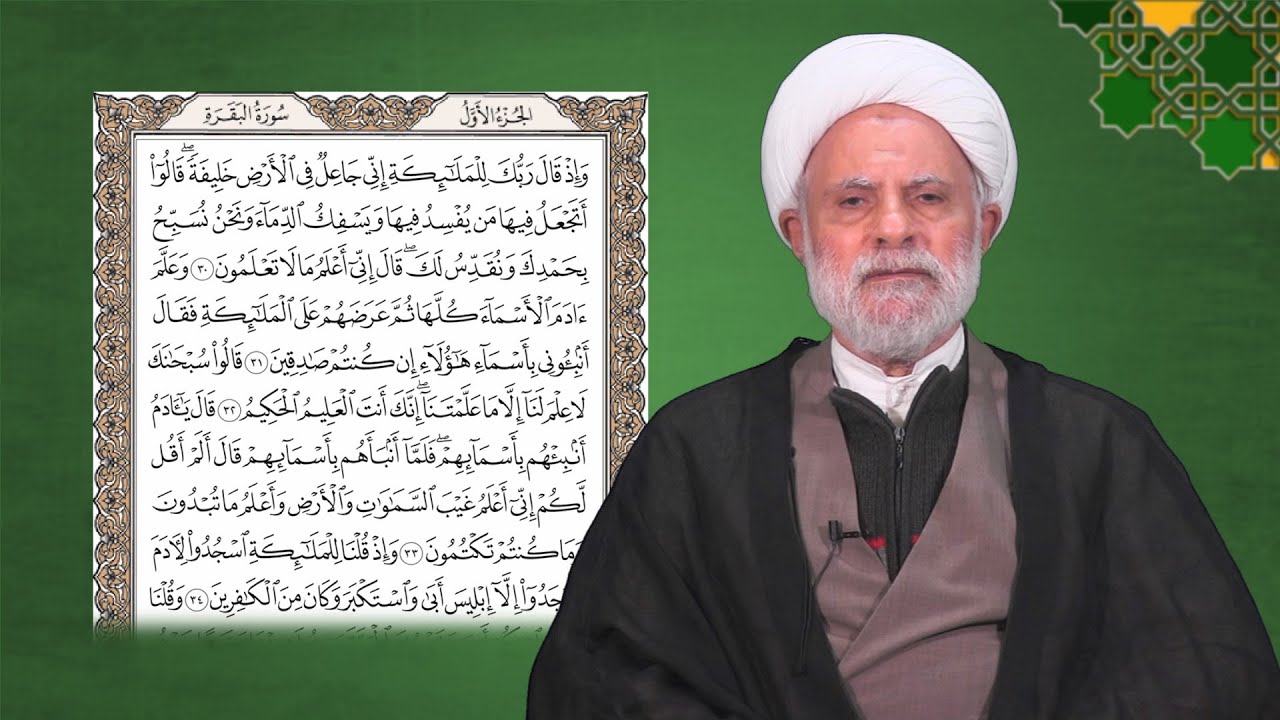 الجُزْءُ الأَوَّلُ
سُورَةُ البَقَرَةِ
وَإِذْ قَالَ رَبُّكَ لِلْمَلَٰٓئِكَةِ إِنِّي جَاعِلٌ فِي ٱلْأَرْضِ خَلِيفَةً ۖ قَالُوٓا۟
أَتَجْعَلُ فِيهَا مَن يُفْسِدُ فِيهَا وَيَسْفِكُ ٱلدِّمَآءَ وَنَحْنُ نُسَبِّحُ
بِحَمْدِكَ وَنُقَدِّسُ لَكَ ۖ قَالَ إِنِّيٓ أَعْلَمُ مَا لَا تَعْلَمُونَ ٣٠ وَعَلَّمَ
ءَادَمَ ٱلْأَسْمَآءَ كُلَّهَا ثُمَّ عَرَضَهُمْ عَلَى ٱلْمَلَٰٓئِكَةِ فَقَالَ
أَنۢبِـُٔونِي بِأَسْمَآءِ هَٰٓؤُلَآءِ إِن كُنتُمْ صَٰدِقِينَ ٣١ قَالُوا۟ سُبْحَٰنَكَ
لَا عِلْمَ لَنَآ إِلَّا مَا عَلَّمْتَنَآ ۖ إِنَّكَ أَنتَ ٱلْعَلِيمُ ٱلْحَكِيمُ ٣٢ قَالَ يَٰٓـَٔادَمُ
أَنۢبِئْهُم بِأَسْمَآئِهِمْ ۖ فَلَمَّآ أَنۢبَأَهُم بِأَسْمَآئِهِمْ قَالَ أَلَمْ أَقُل
لَّكُمْ إِنِّيٓ أَعْلَمُ غَيْبَ ٱلسَّمَٰوَٰتِ وَٱلْأَرْضِ وَأَعْلَمُ مَا تُبْدُونَ
وَمَا كُنتُمْ تَكْتُمُونَ ٣٣ وَإِذْ قُلْنَا لِلْمَلَٰٓئِكَةِ ٱسْجُدُوا۟ لِـَٔادَمَ
إِلَّآ إِبْلِيسَ أَبَىٰ وَٱسْتَكْبَرَ وَكَانَ مِنَ ٱلْكَٰفِرِينَ ٣٤ وَقُلْنَا